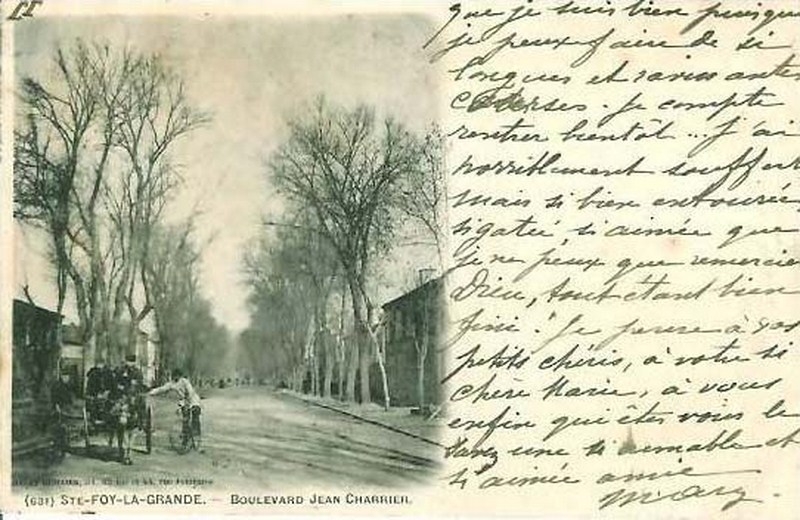 que je suis bien puisque
je peux faire de si
longues et ravissantes
courses. Je compte
rentrer bientôt... J'ai
horriblement souffert
mais si bien entourée,
si gatée si aimée que
je ne peux que remercier
Dieu, tout étant bien
fini. Je pense à vos
petits chéris, à votre si
chère Marie, à vous
enfin qui êtes vous le
savez une si aimable et
si aimée amie
(631) STE-FOY-LA-GRANDE. — BOULEVARD JEAN CHARRIER.